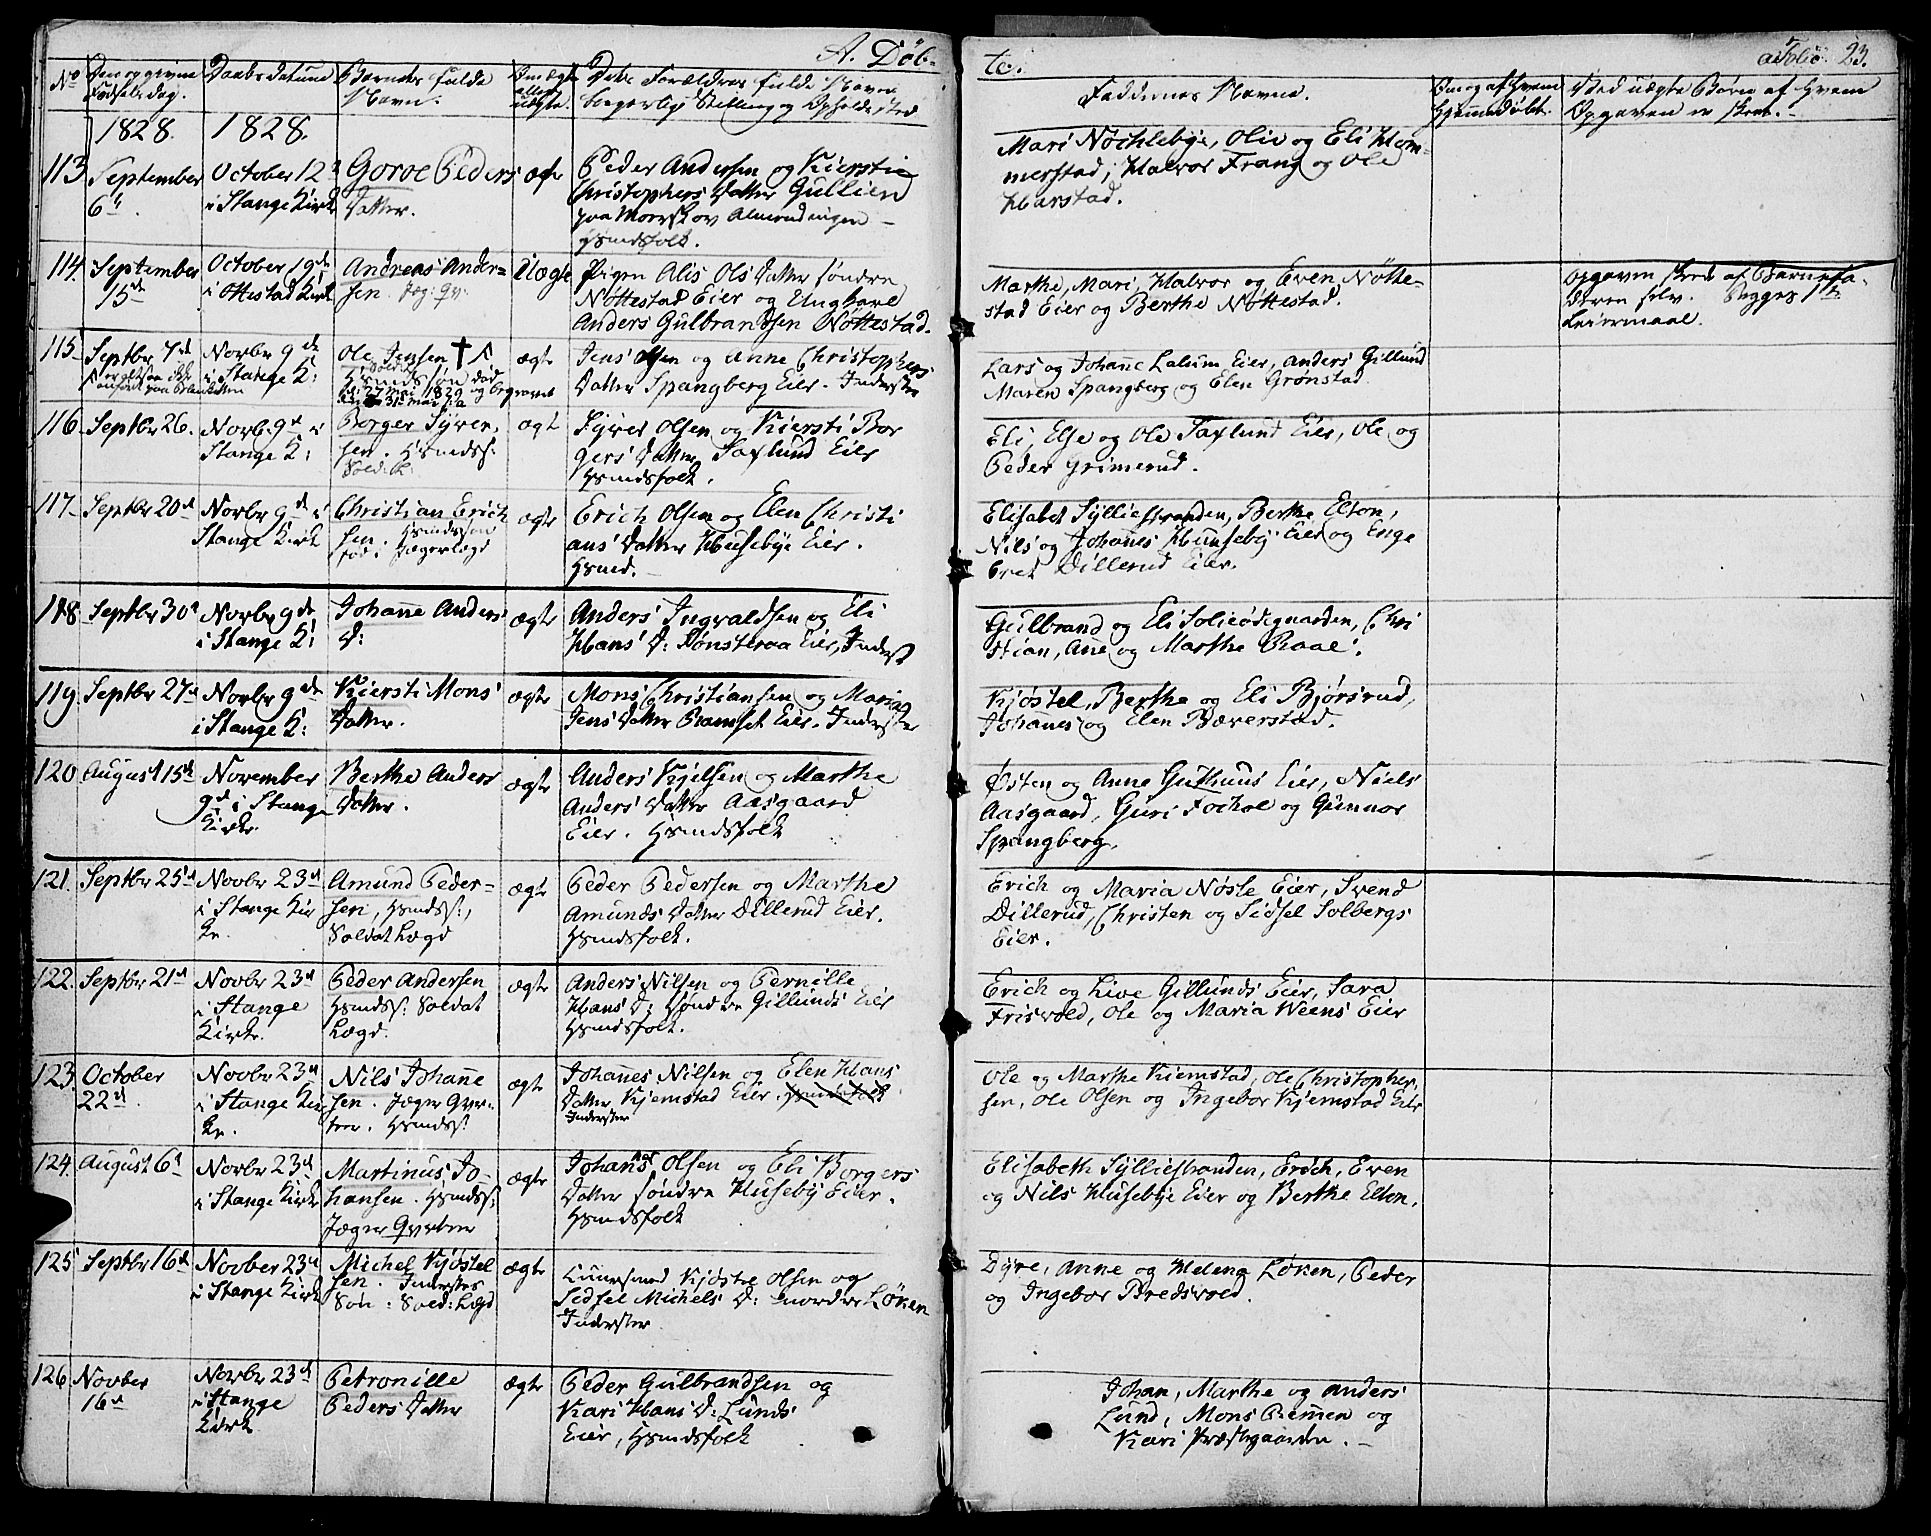 A. Døb-
te.
a Folio: 23.
No
Den opgivne
Fødselsdag.
Daabs datum
Barnets fulde
Navn.
Om ægte
eller
uægte.
Dets Forældres fulde Navne
borgerlige Stilling og Opholdssted
Faddernes Navne.
Om og af Hvem
Hjemmedøbt.
Ved uægte Børn af Hvem
Opgaven er skeet.
1828.
1828.
113
September
6t
October 12
i Stange Kirke
Goroe Peders
Datter.
ægte
Peder Andersen og Kierstie
Christophers Datter Gullien
paa Morskov Almendingen
Hsmdsfolk.
Mari Nøchlebye, Oliv og Eli Hom-
merstad, Halvor Frang og Ole
Harstad.
114.
September
15de
October 19de
i Ottestad Kirke
Andreas Ander-
sen.
Uægte
Pigen Alis Ols Datter søndre
Nøttestad Eier og Ungkarl
Anders Gulbrandsen Nøttestad.
Marthe, Mari, Halvor og Even Nøtte-
stad Eier og Berthe Nøttestad.
Opgaven skeet af Barnefa-
deren selv. Begges 1te
Leiermaal.
115
Septbr 7de
Novbr 9de
i Stange K:
Ole Jensen †
Hsmdssøn død
27 Mai 1829 og begravet
31 Mai
ægte
Jens Olsen og Anne Christophers
Datter Spangberg Eier. Inderster
Lars og Johane Lalum Eier, Anders Gillund
Maren Spangberg og Elen Grønstad
116
Septbr 26.
Novb. 9de i
Stange K:
Borger Syver-
sen. Hsmdss:
Sold: L.
ægte
Syver Olsen og Kiersti Bor
gers Datter Saxlund Eier
Hsmdsfolk.
Eli, Else og Ole Saxlund Eier, Ole og
Peder Grimerud.
117
Septbr 20de
Novbr 9de i
Stange Kirke
Christian Erich
sen. Hsmdssøn
Jægerlægd
ægte
Erich Olsen og Elen Christi
ans Datter Husebye Eier.
Hsmd.
Elisabet Sylliestranden, Berthe Elton,
Nils og Johannes Huuseby Eier og Enge
bret Dillerud Eier.
118
Septbr 30te
Novbr 9de
i Stange K:
Johane Anders
D:
ægte
Anders Ingvaldsen og Eli
Hans D: Rønsteraa Eier, Inderst
Gulbrand og Eli Solieødegaarden, Chri
stian, Ane og Marthe Raae.
119
Septbr 27de
Novbr 9de
i Stange K:
Kiersti Mons
Datter.
ægte
Mons Christiansen og Maria
Jens Datter Ramset Eier. Inderster
Kjøstel, Berthe og Eli Bjørsrud,
Johanes og Elen Bæverstad.
120
August 15de
November
9de i Stange
Kirke.
Berthe Anders
Datter.
ægte
Anders Kjelsen og Marthe
Anders Datter Aasgaard
Eier. Hsmdsfolk
Østen og Anne Guthuus Eier, Niels
Aasgaard, Guri Fochol og Gunnor
Spangberg.
121.
Septbr 25de
Novbr 23de
i Stange Kir
ke.
Amund Peder-
sen, Hsmdss:,
Soldat Lægd
ægte
Peder Pedersen og Marthe
Amunds Datter Dillerud Eier.
Hsmdsfolk.
Erich og Maria Nøsle Eier, Svend
Dillerud, Christen og Sidsel Solbergs
Eier.
122.
Septbr 21de
Novbr 23de
i Stange
Kirke.
Peder Andersen
Hsmdss: Soldat
Lægd.
ægte
Anders Nilsen og Pernille
Hans D: Søndre Gillunds Eier
Hsmdsfolk.
Erich og Live Gillunds Eier, Sara
Frisvold, Ole og Maria Weens Eier
123.
October
22de
Novbr 23de
i Stange Kir
ke.
Nils Johane
sen. Jæger Qver-
teer. Hsmdss:
ægte
Johanes Nilsen og Elen Hans
Datter Kjemstad Eier. Hsmdsfolk
Inderster
Ole og Marthe Kiemstad, Ole Christopher-
sen, Ole Olsen og Ingebor Kjemstad Eier
124.
August 6te
Novbr 23de
i Stange Kirke
Martinus Jo-
hansen. Hsmdss:
Jæger Qvarteer
ægte
Johans Olsen og Eli Borgers
Datter søndre Huseby Eier.
Hsmdsfolk
Elisabeth Sylliestranden, Erich, Even
og Nils Husebye Eier og Berthe Elton.
125
Septbr 16de
Novber 23de
i Stange Kirke
Michel Kjøstel
sen. Inderstes
Søn: Sold: Lægd
ægte
Kjøstel Olsen og
Sidsel Michels D: nordre Løken
Inderster
Dyre, Anne og Helena Løken, Peder
og Ingebor Bredsvold.
126
Novber
16de
Novbr 23de
i Stange
Kirke
Petronille
Peders Datter
ægte
Peder Gulbrandsen og
Kari Hans D: Lunds
Eier, Hsmdsfolk
Johan, Marthe og Anders
Lund, Mons Remen og
Kari Præstegaarden.